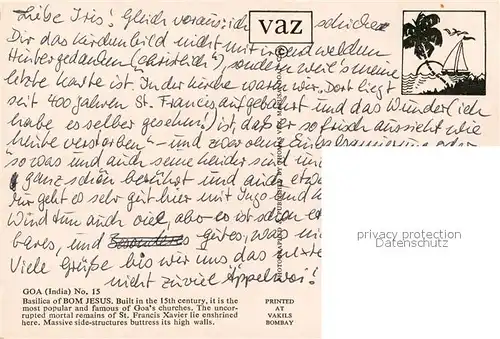 Liebe Iris! Gleich voraus: ich schicke
vaz
©
Dir das Kirchenbild nicht mit irgendwelchen
Hintergedanken (christlich"), sondern weil's meine
letzte Karte ist. In der Kirche waren wir. Dort liegt
seit 400 Jahren St. Francis aufgebahrt und das Wunder (ich
habe es selber gesehen!) ist, daß er so frisch aussieht wie
"heute verstorben" – und zwar ohne Einbalsamierung oder
so was und auch seine Kleider sind
ganz schön berührt und auch etwa
nur geht es sehr gut hier mit Ingo und
Wind tun auch viel, aber es ist schon
bares, und gutes, was
Viele Grüße bis wir uns das nächste
nicht zuviel Äppelwoi!
GOA (India) No. 15
Basilica of BOM JESUS. Built in the 15th century, it is the
most popular and famous of Goa's churches. The uncor-
rupted mortal remains of St. Francis Xavier lie enshrined
here. Massive side-structures buttress its high walls.
PRINTED
AT
VAKILS
BOMBAY
privacy
protection